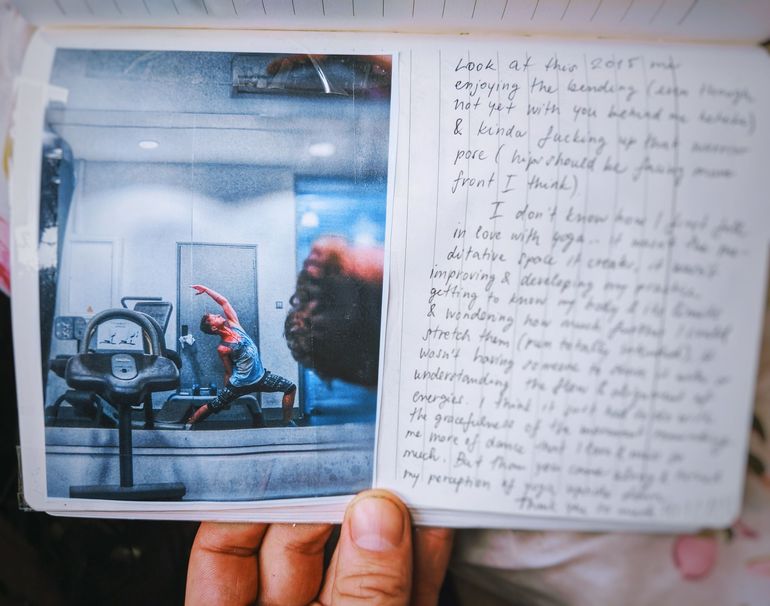 Look at this 2015 me
enjoying the bending (even though
not yet with you behind me hahaha)
& kinda fucking up that warrior
pose (hips should be facing more
front I think)
I don't know how I first fell
in love with yoga.. it wasn't the me-
ditative space it creates, it wasn't
improving & developing my practice,
getting to know my body & its limits
& wondering how much further I could
stretch them (pun totally intended), it
wasn't having someone to
understanding the flow & alignment of
energies. I think it just had to do with
the gracefulness of the movement reminding
me more of dance that I love & miss so
much. But then you came along & turned
my perception of yoga upside down.
Thank you so much